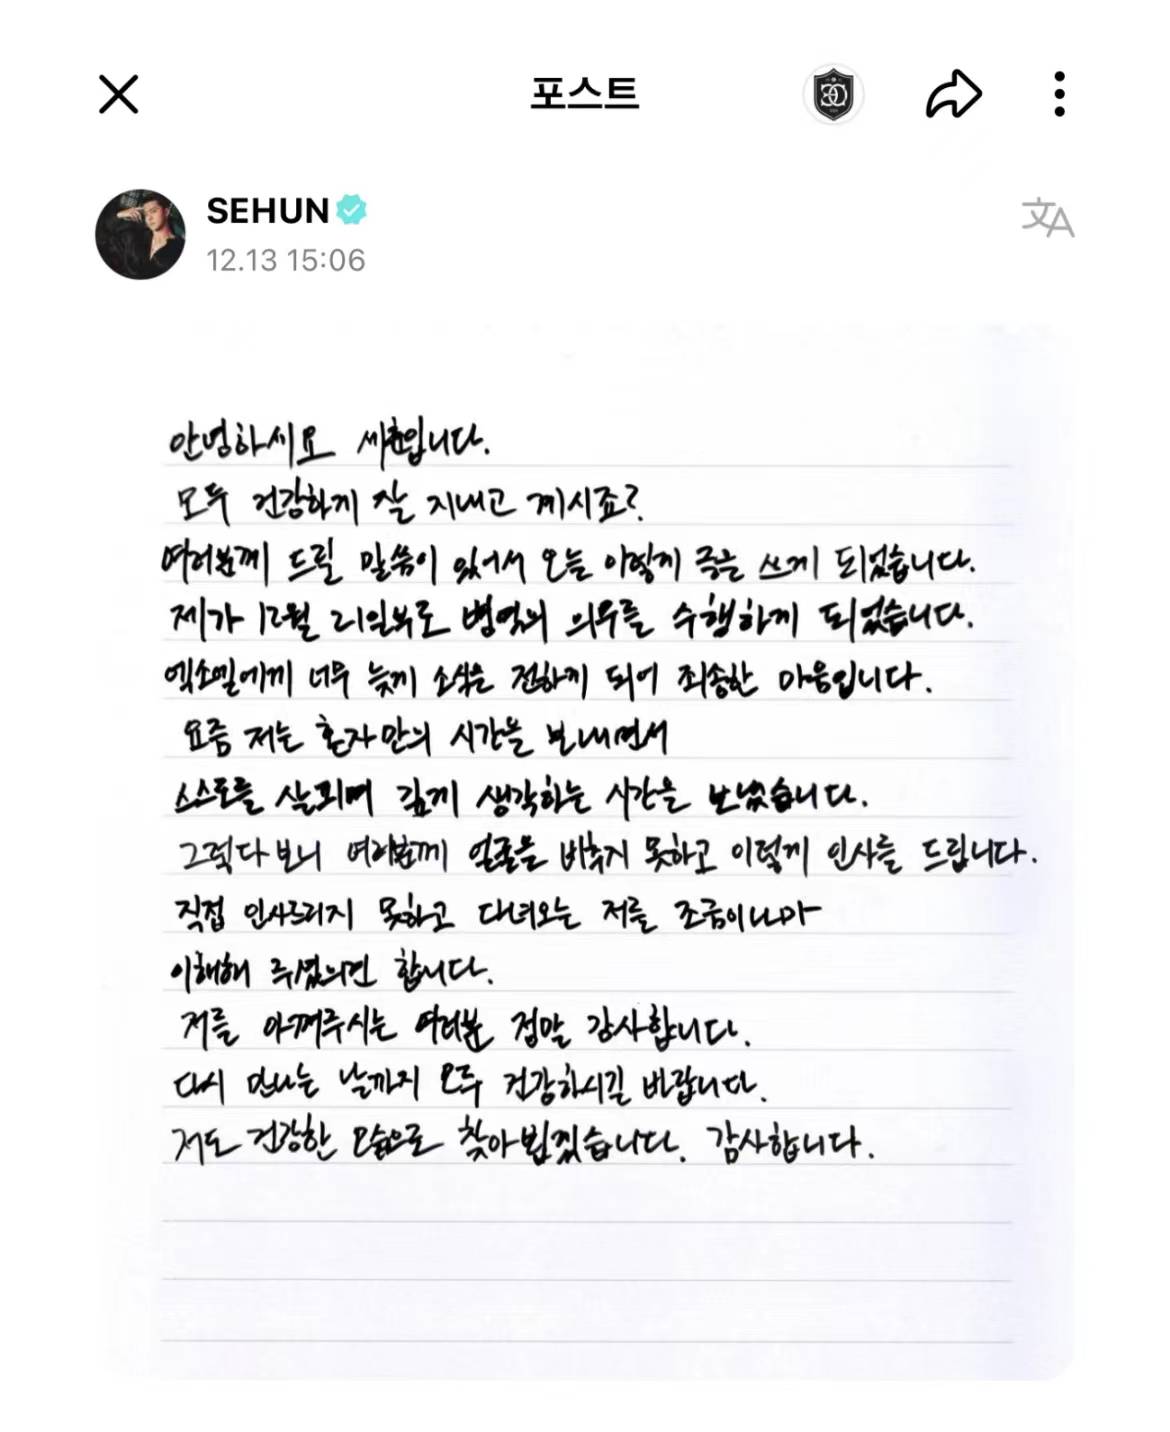 포스트
SEHUN
12.13 15:06
안녕하세요 세훈입니다.
모두 건강하게 잘 지내고 계시죠?
여러분께 드릴 말씀이 있어서 오늘 이렇게 글을 쓰게 되었습니다.
제가 12월 21일부로 병역의 의무를 수행하게 되었습니다.
엑소엘에게 너무 늦게 소식을 전하게 되어 죄송한 마음입니다.
요즘 저는 혼자만의 시간을 보내면서
스스로를 살피며 깊게 생각하는 시간을 보냈습니다.
그렇다 보니 여러분께 얼굴을 비추지 못하고 이렇게 인사를 드립니다.
직접 인사드리지 못하고 다녀오는 저를 조금이나마
이해해 주셨으면 합니다.
저를 아껴주시는 여러분 정말 감사합니다.
다시 만나는 날까지 모두 건강하시길 바랍니다.
저도 건강한 모습으로 찾아뵙겠습니다. 감사합니다.